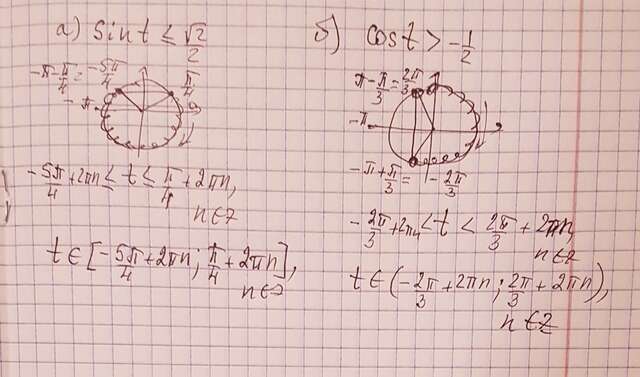 а) sin t ≤ √2/2
-π-π/4=-5π/4
π/4
-π
-5π/4+2πn ≤ t ≤ π/4+2πn,
n∈Z
t∈[-5π/4+2πn; π/4+2πn],
n∈Z
б) cos t > -1/2
π-π/3=2π/3
-π
-π+π/3= -2π/3
-2π/3+2πn < t < 2π/3+2πn,
n∈Z
t∈(-2π/3+2πn; 2π/3+2πn),
n∈Z